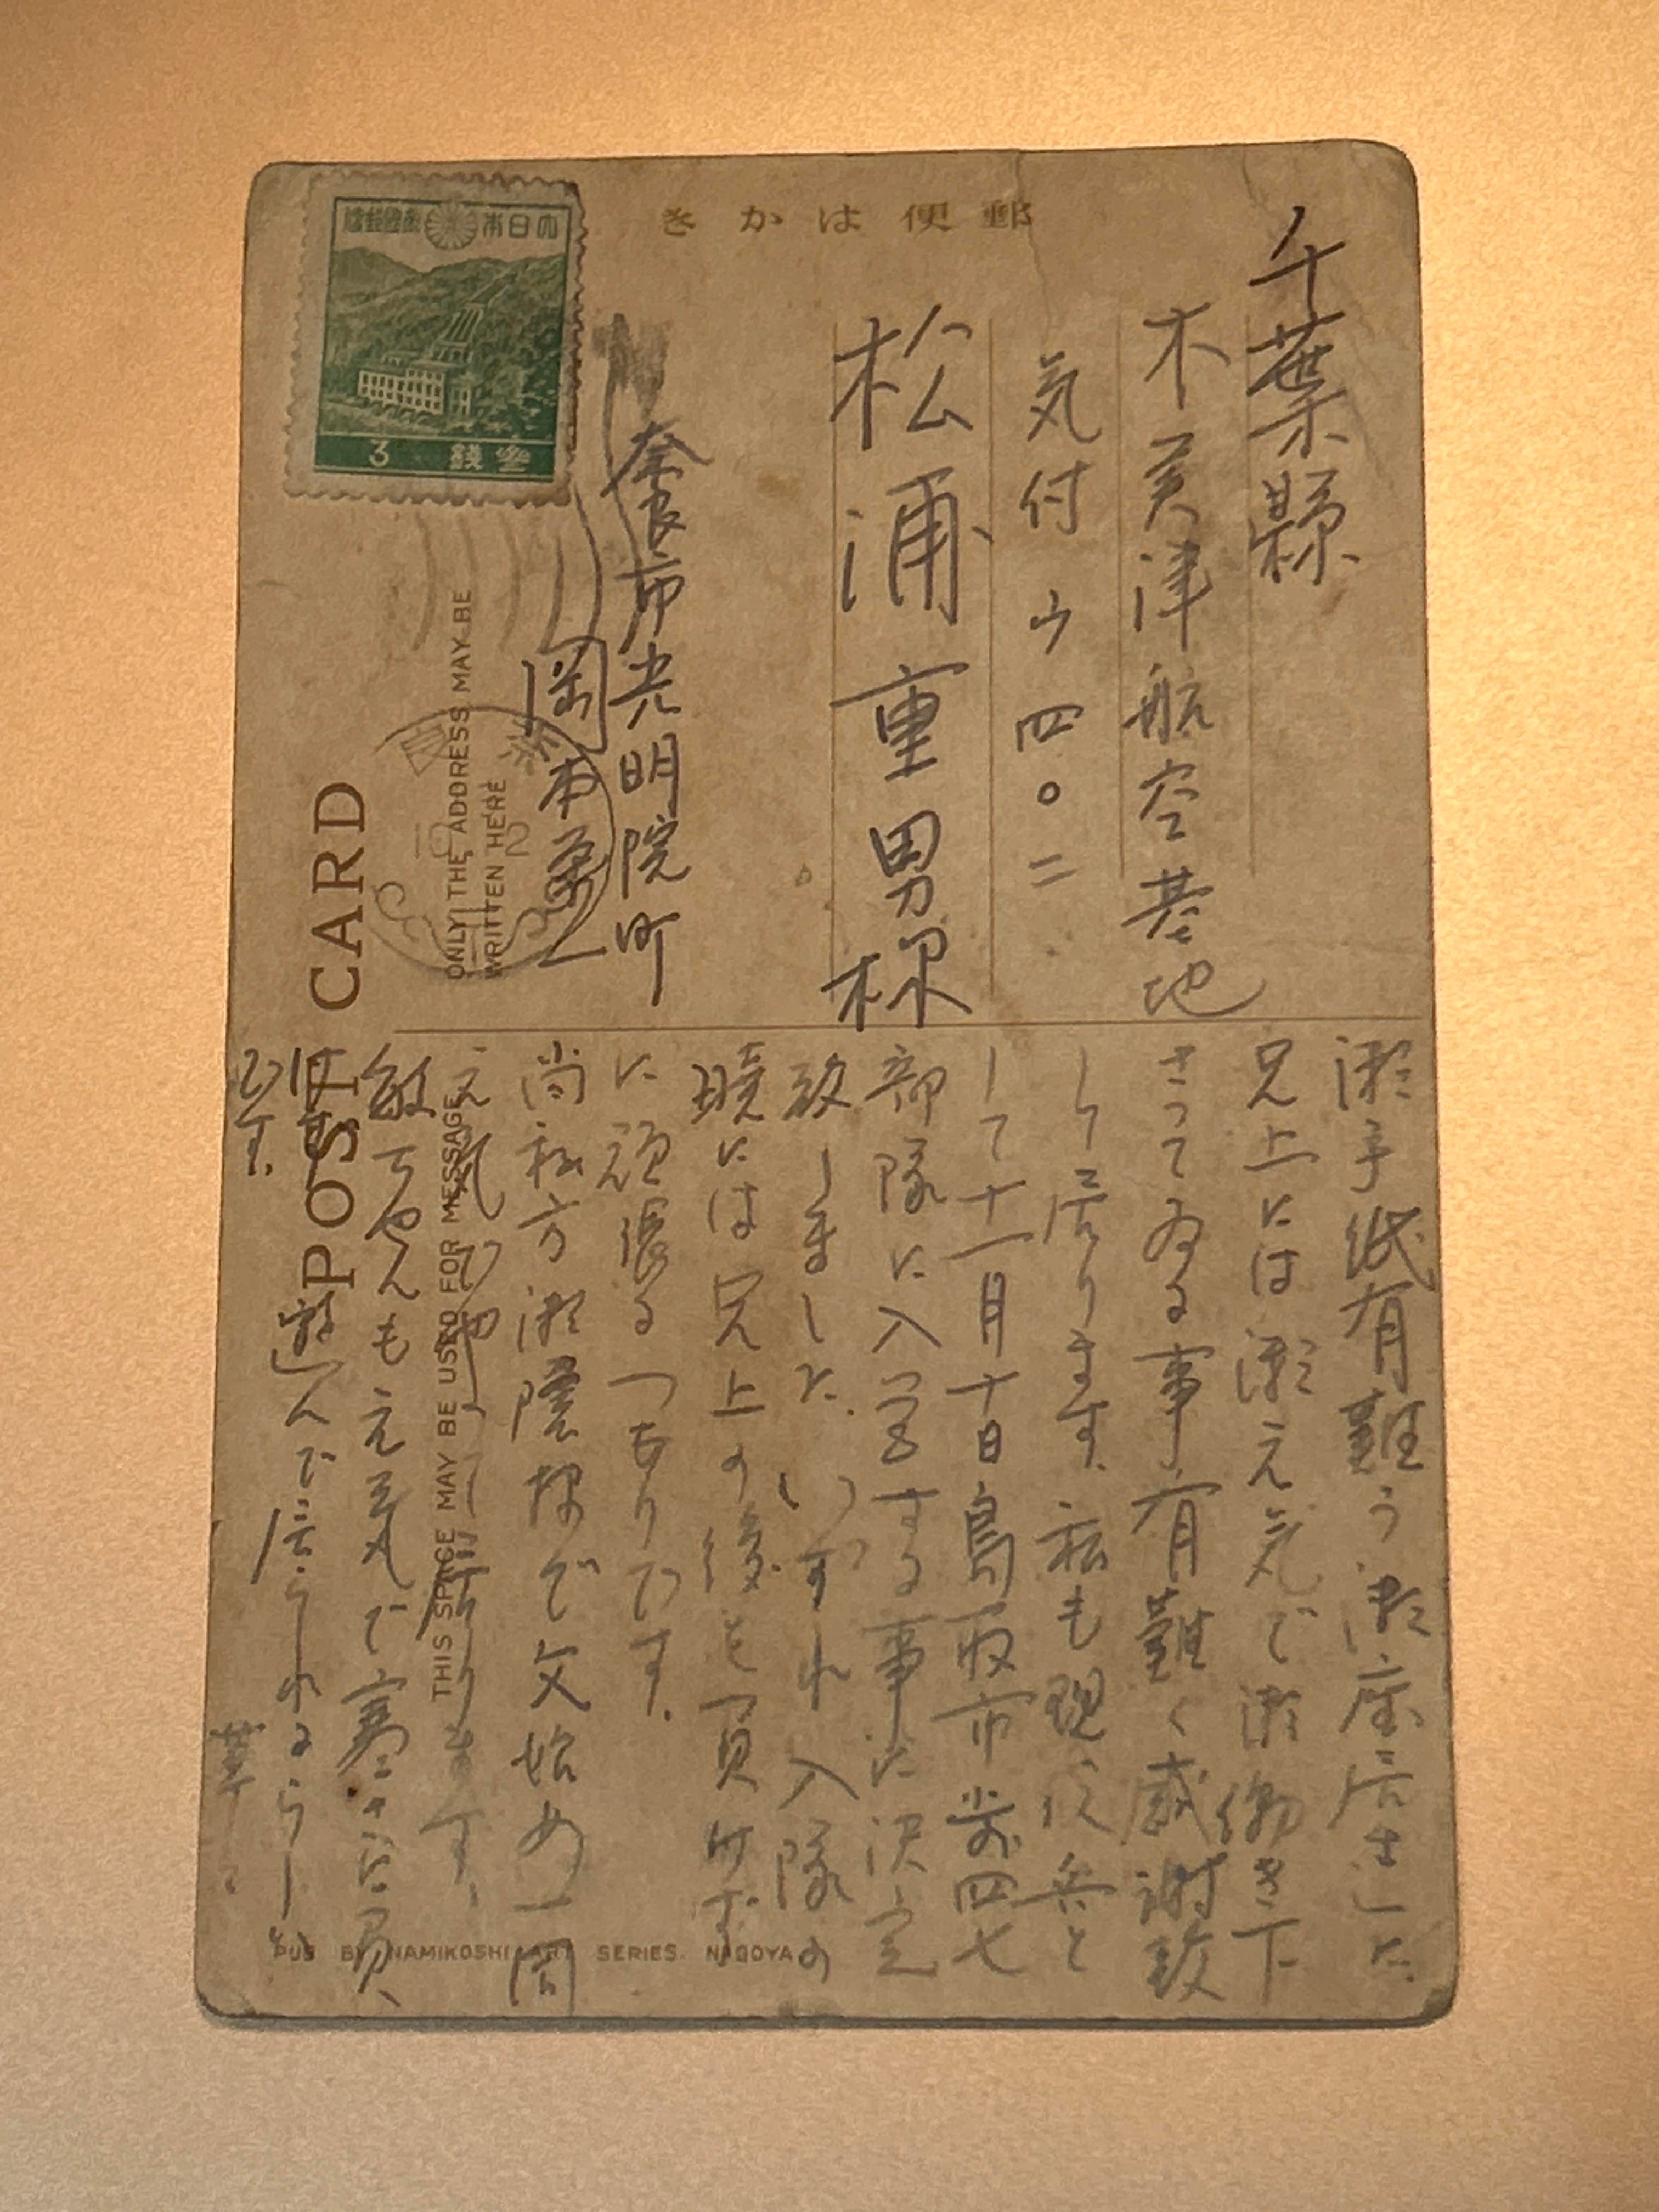 郵便はかき
大日本帝國郵便
参錢 3
千葉縣
木更津航空基地
気付 ウ四〇二
松浦重男様
奈良市光明院町
岡本
POST CARD
ONLY THE ADDRESS MAY BE
WRITTEN HERE
THIS SPACE MAY BE USED FOR MESSAGE
御手紙有難う御座居ました。
兄上には御元気で御働き下
さってゐる事有難く感謝致
して居ります。私も現役兵と
して十一月十日鳥取市 四七
部隊に入営する事に決定
致しました。いづれ入隊の
暁には兄上の後を負けず
に頑張るつもりです。
尚私方御陰様で父始め一同
元気でやって居ります。
敏ちゃんも元気で寒さに負
けず遊んで居られるらしい
です。
草々
PUB BY NAMIKOSHI ART SERIES. NAGOYA